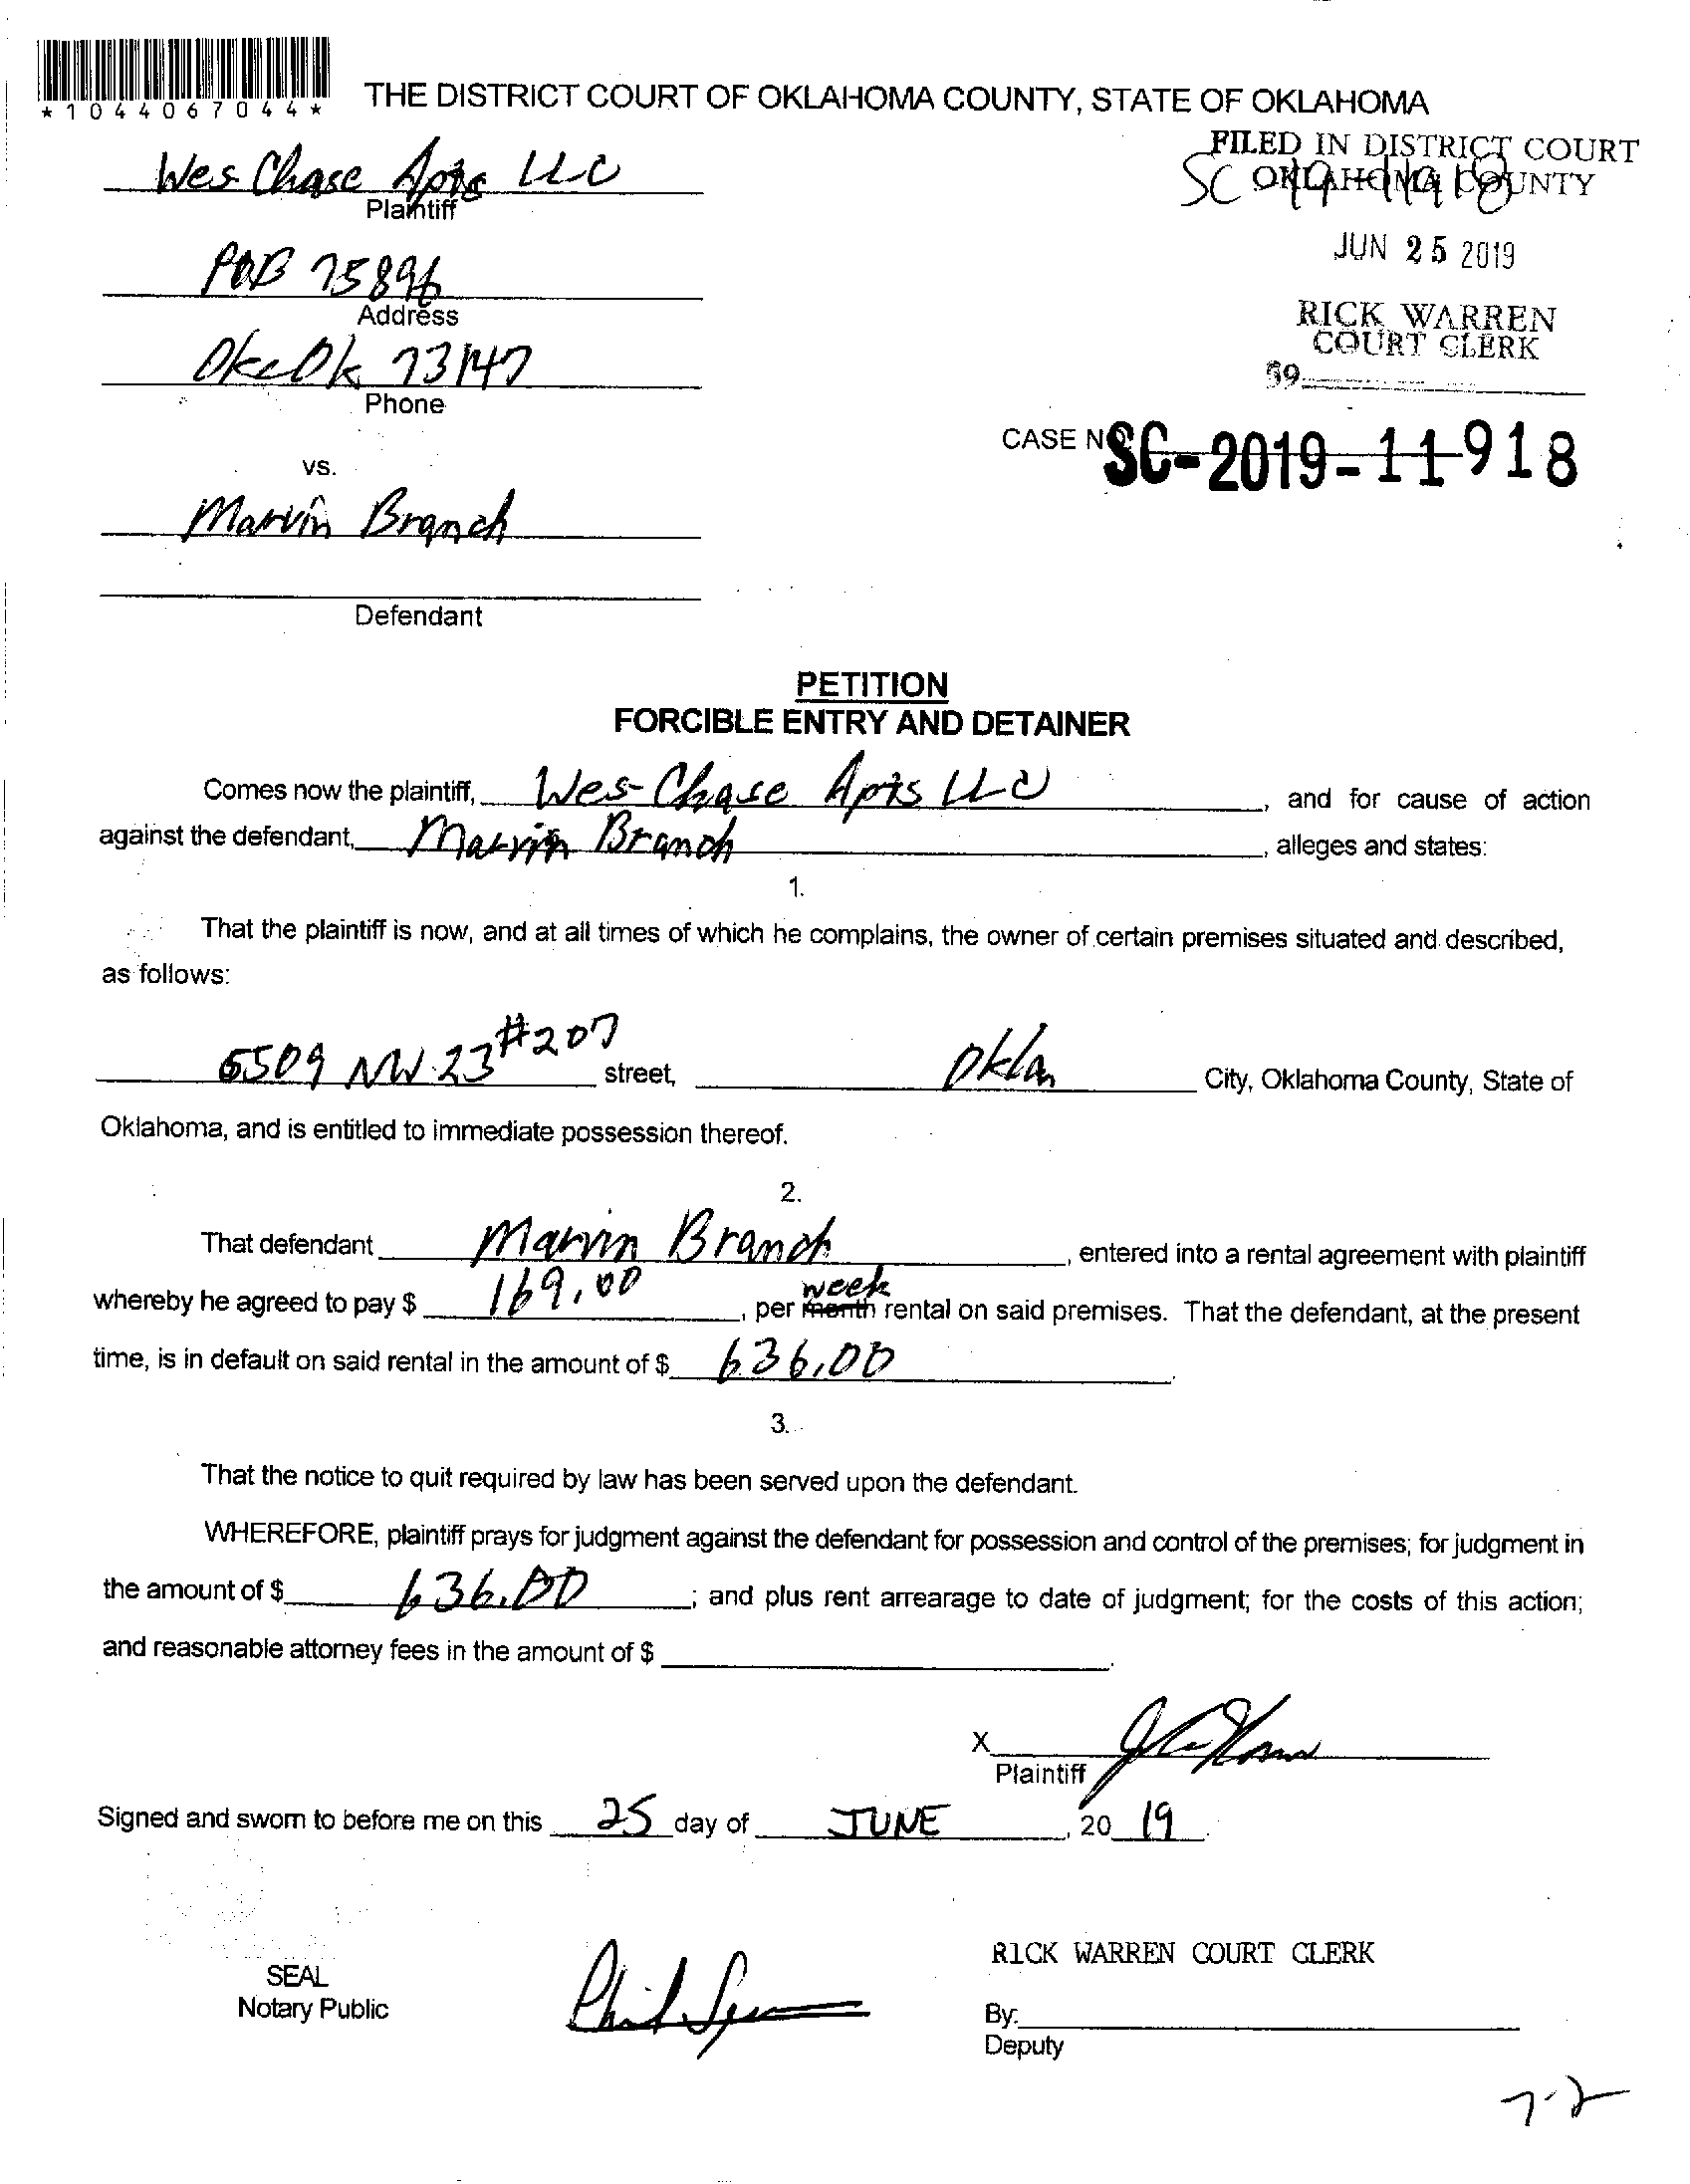 *1044067044*
THE DISTRICT COURT OF OKLAHOMA COUNTY, STATE OF OKLAHOMA
FILED IN DISTRICT COURT
OKLAHOMA COUNTY
SC 19-11918
Wes Chase Apts LLC
Plaintiff
JUN 25 2019
POB 75896
Address
RICK WARREN
COURT CLERK
Okc Ok 73147
Phone
39
CASE NO. SC-2019-11918
vs.
Marvin Branch
Defendant
PETITION
FORCIBLE ENTRY AND DETAINER
Comes now the plaintiff, Wes-Chase Apts LLC, and for cause of action
against the defendant, Marvin Branch, alleges and states:
1.
That the plaintiff is now, and at all times of which he complains, the owner of certain premises situated and described,
as follows:
6509 NW 23 #207 street, Okla City, Oklahoma County, State of
Oklahoma, and is entitled to immediate possession thereof.
2.
That defendant Marvin Branch, entered into a rental agreement with plaintiff
week
whereby he agreed to pay $ 169.00, per month rental on said premises. That the defendant, at the present
time, is in default on said rental in the amount of $ 636.00.
3.
That the notice to quit required by law has been served upon the defendant.
WHEREFORE, plaintiff prays for judgment against the defendant for possession and control of the premises; for judgment in
the amount of $ 636.00; and plus rent arrearage to date of judgment; for the costs of this action;
and reasonable attorney fees in the amount of $ .
X
Plaintiff
Signed and sworn to before me on this 25 day of JUNE, 20 19.
RICK WARREN COURT CLERK
SEAL
Notary Public
By:
Deputy
7-2